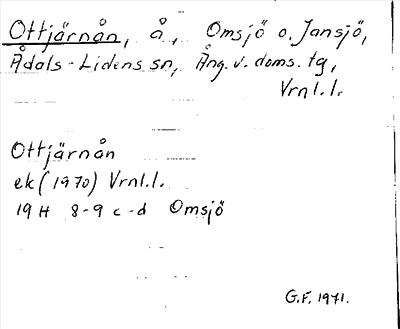 Ottjärnån, å, Omsjö o. Jansjö,
Ådals-Lidens sn, Ång. v. doms. tg,
Vrnl. l.
Ottjärnån
ek (1970) Vrnl. l.
19 H 8-9 c-d Omsjö
G.F. 1971.